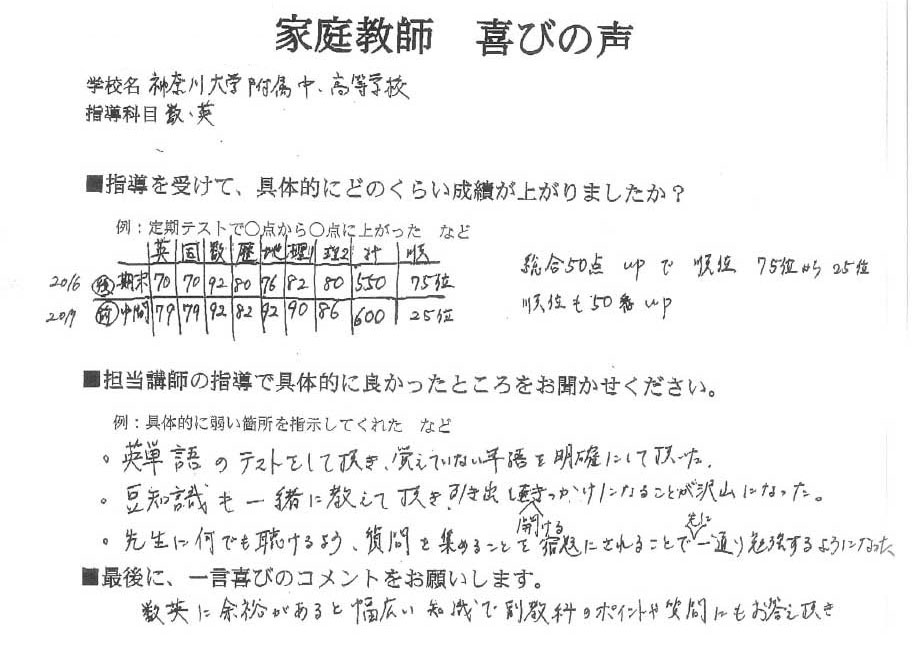 家庭教師 喜びの声
学校名 神奈川大学附属中・高等学校
指導科目 数・英
■指導を受けて、具体的にどのくらい成績が上がりましたか？
例：定期テストで〇点から〇点に上がった など
英 国 数 歴 地 理1 理2 計 順
2016 後 期末 70 70 92 80 76 82 80 550 75位
2017 前 中間 79 79 92 82 92 90 86 600 25位
総合50点 upで 順位 75位から25位
順位も50番up
■担当講師の指導で具体的に良かったところをお聞かせください。
例：具体的に弱い箇所を指示してくれた など
。英単語のテストをして頂き、覚えていない単語を明確にして頂いた。
。豆知識も一緒に教えて頂き引き出し開けるきっかけになることが沢山になった。
。先生に何でも聴けるよう、質問を集めることを宿題にされることで先に一通り勉強するようになった
■最後に、一言喜びのコメントをお願いします。
数英に余裕があると幅広い知識で別教科のポイントや質問にもお答え頂き